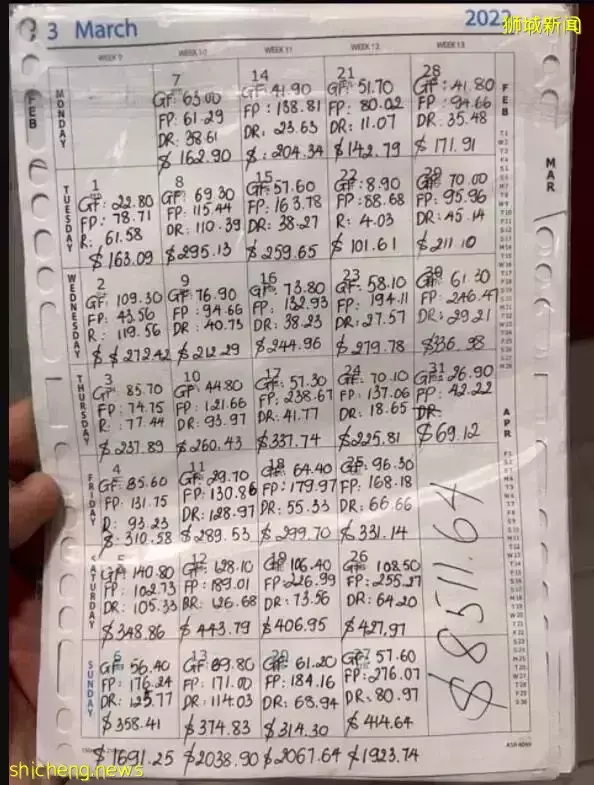 3 March
2022
狮城新闻
WEEK 9 WEEK 10 WEEK 11 WEEK 12 WEEK 13
FEB
MONDAY
7
GF: 63.00
FP: 61.29
DR: 38.61
$ 162.90
14
GF: 41.90
FP: 138.81
DR: 23.63
$: 204.34
21
GF: 51.70
FP: 80.02
DR: 11.07
$142.79
28
GF: 41.80
FP: 94.66
DR: 35.48
$ 171.91
TUESDAY
1
GF: 22.80
FP: 78.71
R: 61.58
$163.09
8
GF: 69.30
FP: 115.44
DR: 110.39
$295.13
15
GF: 57.60
FP: 163.78
DR: 38.27
$259.65
22
GF: 8.90
FP: 88.68
R: 4.03
$101.61
29
GF: 70.00
FP: 95.96
DR: 45.14
$211.10
WEDNESDAY
2
GF: 109.30
FP: 43.56
R: 119.56
$ $272.42
9
GF: 76.90
FP: 94.66
DR: 40.73
$212.29
16
GF: 73.80
FP: 132.93
DR: 38.23
$244.96
23
GF: 58.10
FP: 194.11
DR: 27.57
$279.78
30
GF: 61.30
FP: 246.47
DR: 29.21
$336.98
THURSDAY
3
GF: 85.70
FP: 74.75
R: 77.44
$237.89
10
GF: 44.80
FP: 121.66
DR: 93.97
$260.43
17
GF: 57.30
FP: 238.67
DR: 41.77
$337.74
24
GF: 70.10
FP: 137.06
DR: 18.65
$225.81
31
GF: 26.90
FP: 42.22
DR:
$69.12
FRIDAY
4
GF: 85.60
FP: 131.75
R: 93.23
$: 310.58
11
GF: 29.70
FP: 130.86
DR: 128.97
$289.53
18
GF: 64.40
FP: 179.97
DR: 55.33
$299.70
25
GF: 96.30
FP: 168.18
DR: 66.66
$331.14
SATURDAY
5
GF: 140.80
FP: 102.73
DR: 105.33
$348.86
12
GF: 128.10
FP: 189.01
DR: 126.68
$443.79
19
GF: 106.40
FP: 226.99
DR: 73.56
$406.95
26
GF: 108.50
FP: 255.27
DR: 64.20
$427.97
SUNDAY
6
GF: 56.40
FP: 176.24
DR: 125.77
$358.41
13
GF: 89.80
FP: 171.00
DR: 114.03
$374.83
20
GF: 61.20
FP: 184.16
DR: 68.94
$314.30
27
GF: 57.60
FP: 276.07
DR: 80.97
$414.64
$8511.64
$1691.25 $2038.90 $2067.64 $1923.74
FEB
MAR
APR
shicheng.news